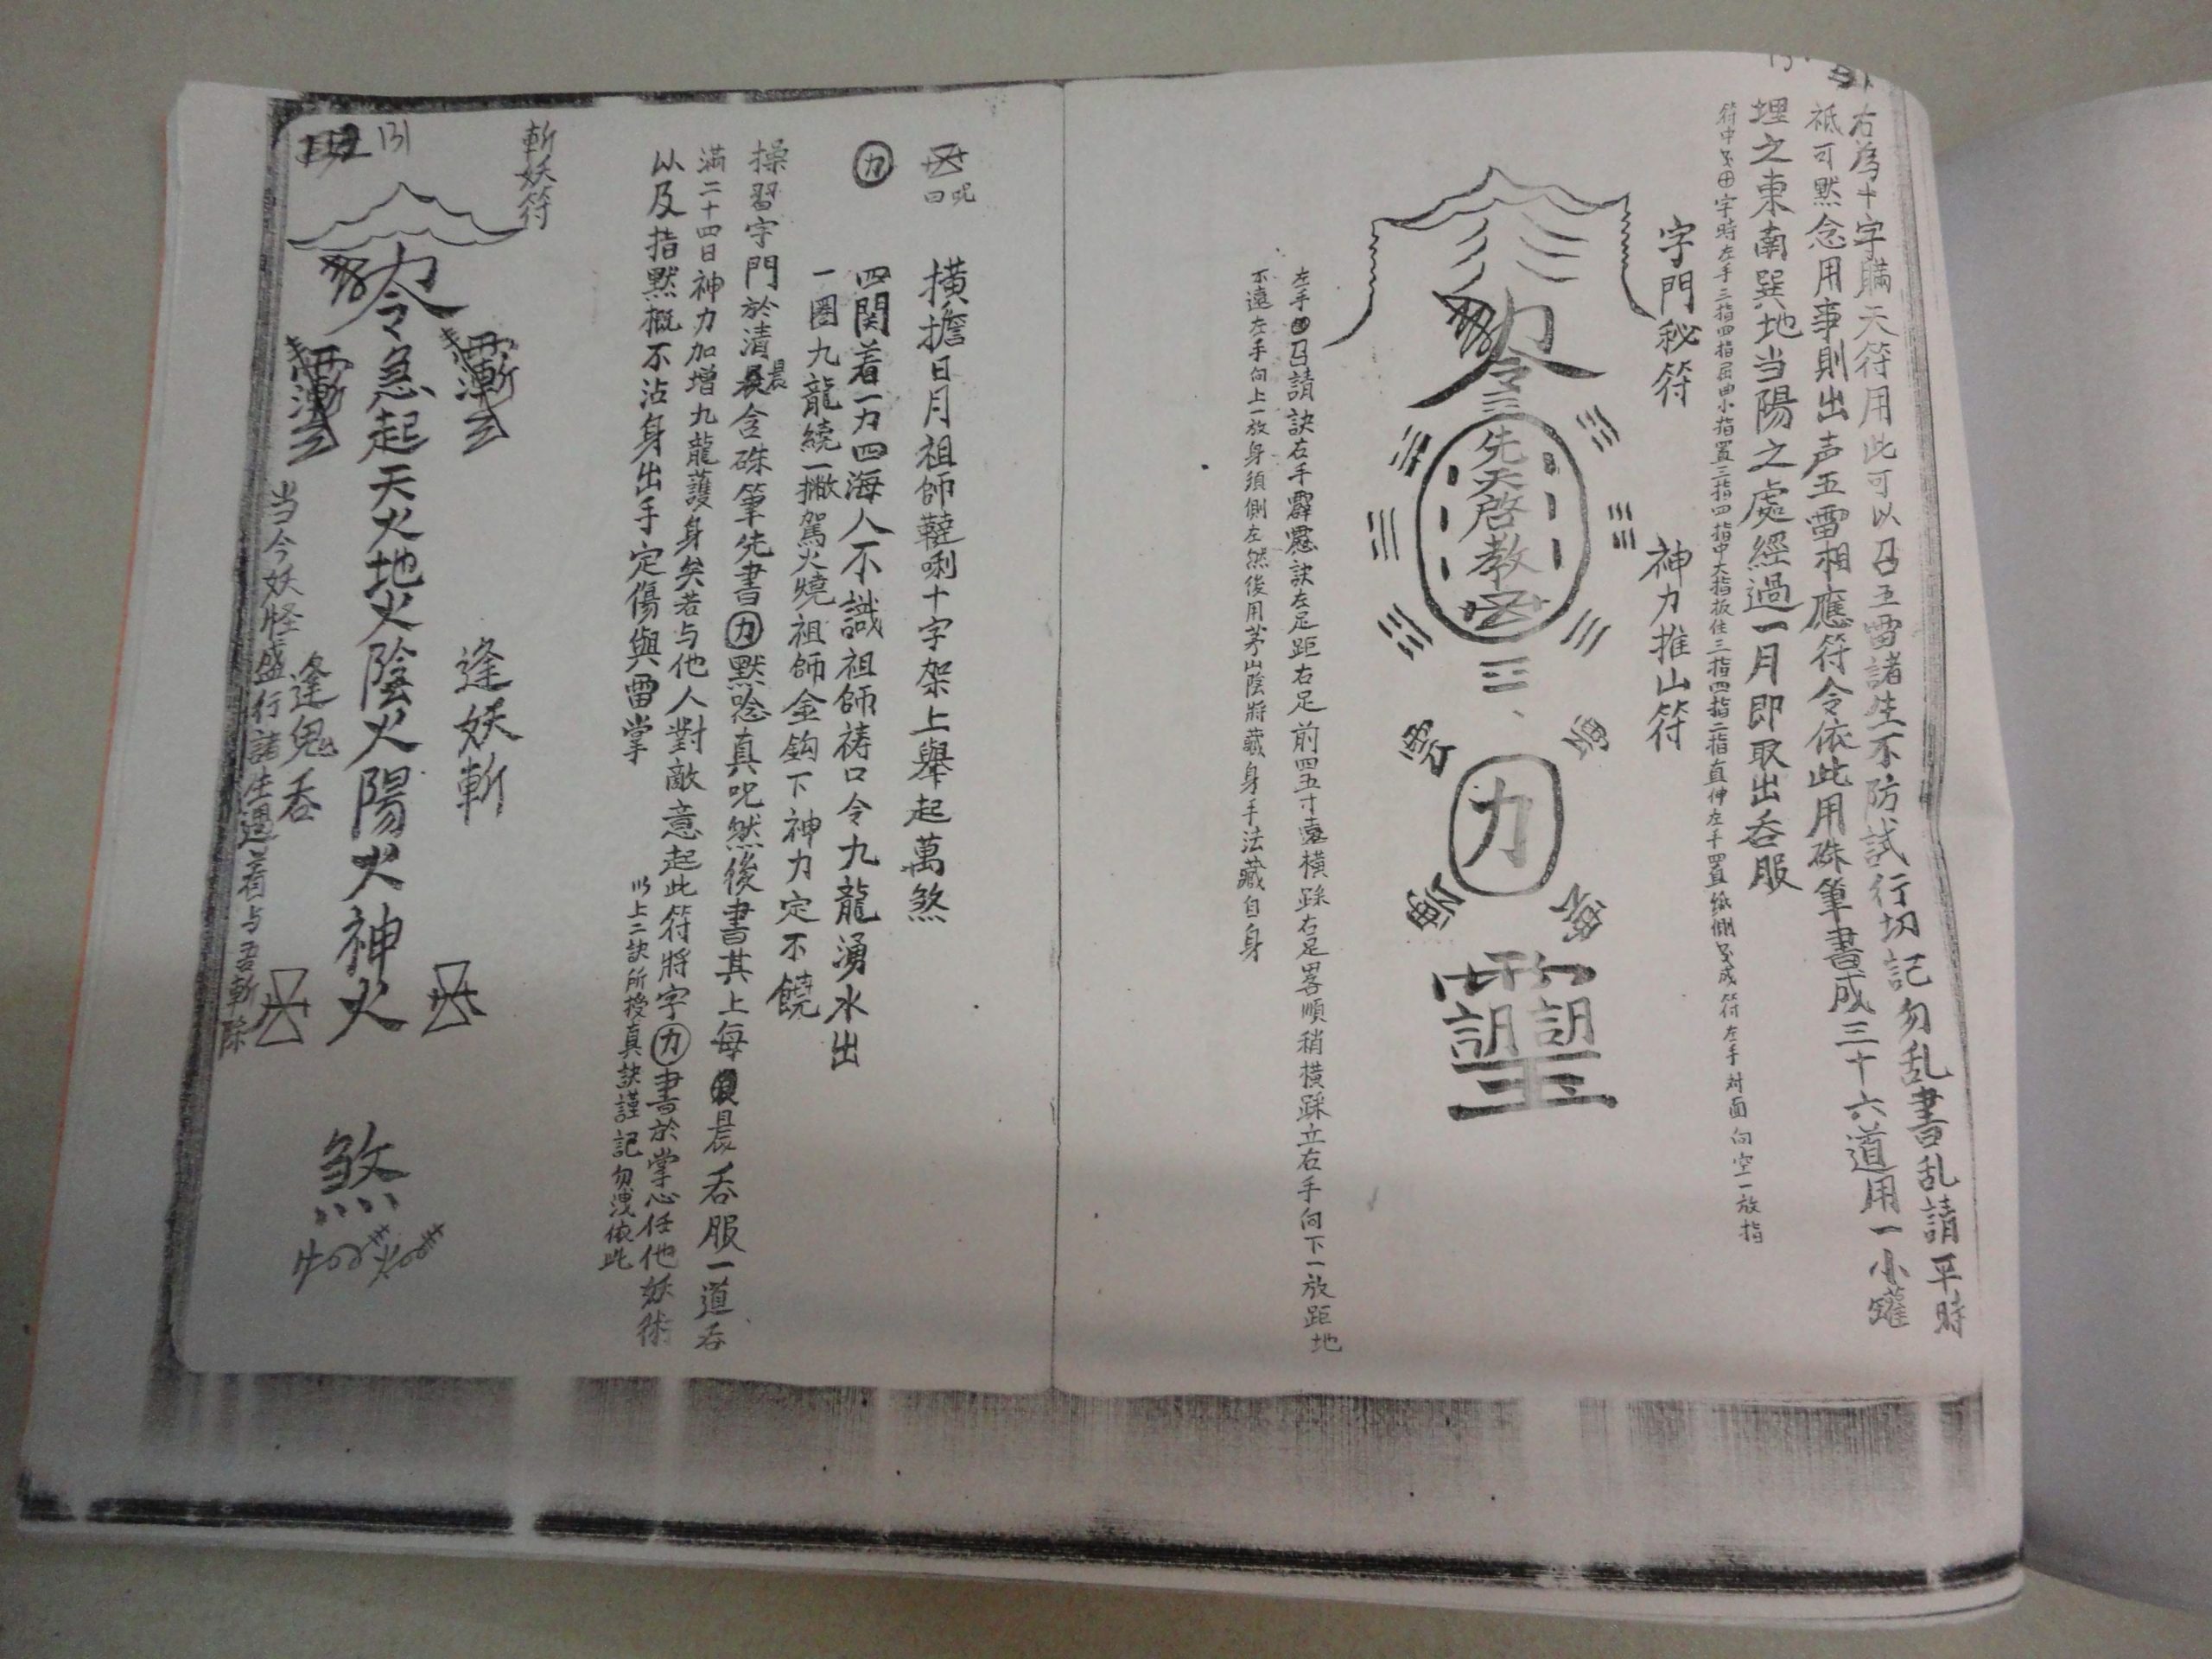 右為十字瞞天符用此可以召五雷諸生不防試行切記勿乱書乱請平時
祗可默念用事則出声五雷相應符令依此用硃筆書成三十六道用一小罐
埋之東南巽地当陽之處經過一月即取出吞服
字時左手三指四指屈曲小指置三指四指中大指扳住三指四指二指直伸左手置紙側 成符左手对面向空一放指
字門秘符 神力推山符
令
三
先天啓教
力
左手 召請訣右手霹靂訣左足距右足前四五寸遠橫踩右足畧順稍橫踩立右手向下一放距地
不遠左手向上一放身須側左然後用茅山陰將藏身手法藏自身
呪曰 橫擔日月祖師韃唎十字架上舉起萬煞
力 四関着一力四海人不識祖師祷口令九龍湧水出
一圈九龍繞一撇駕火燒祖師金鈎下神力定不饒
操習字門於清晨含硃筆先書力默唸真呪然後書其上每晨吞服一道吞
滿二十四日神力加增九龍護身矣若与他人對敵意起此符將字力書於掌心任他妖術
以及指默概不沾身出手定傷與雷掌
以上二訣所授真訣謹記勿洩依此
斬妖符
131
逢妖斬
令急起天火地火陰火陽火神火
煞
逢鬼吞
当今妖怪盛行諸生遇着与吾斬除